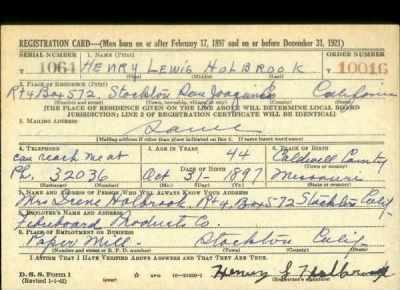 REGISTRATION CARD—(Men born on or after February 17, 1897 and on or before December 31, 1921)
SERIAL NUMBER 1. NAME (Print) ORDER NUMBER
T 1064 HENRY LEWIS HOLBROOK T 10016
(First) (Middle) (Last)
2. PLACE OF RESIDENCE (Print)
Rt 4 Box 572, Stockton San Joaquin California
(Number and street) (Town, township, village, or city) (County) (State)
[THE PLACE OF RESIDENCE GIVEN ON THE LINE ABOVE WILL DETERMINE LOCAL BOARD
JURISDICTION; LINE 2 OF REGISTRATION CERTIFICATE WILL BE IDENTICAL]
3. MAILING ADDRESS
Same
[Mailing address if other than place indicated on line 2. If same insert word same]
4. TELEPHONE 5. AGE IN YEARS 6. PLACE OF BIRTH
can reach me at 44 Caldwell County
DATE OF BIRTH (Town or county)
Ph. 32036 Oct 31 - 1897 Missouri
(State or country)
7. NAME AND ADDRESS OF PERSON WHO WILL ALWAYS KNOW YOUR ADDRESS
Mrs Irene Holbrook Rt 4, Box 572 Stockton Calif.
8. EMPLOYER'S NAME AND ADDRESS
Fibreboard Products Co.
9. PLACE OF EMPLOYMENT OR BUSINESS
Paper Mill. Stockton Calif.
(Number and street or R. F. D. number) (Town) (County) (State)
I AFFIRM THAT I HAVE VERIFIED ABOVE ANSWERS AND THAT THEY ARE TRUE.
D. S. S. Form 1 GPO 16—21630-1 Henry L Holbrook
(Revised 1-1-42) (Registrant's signature)